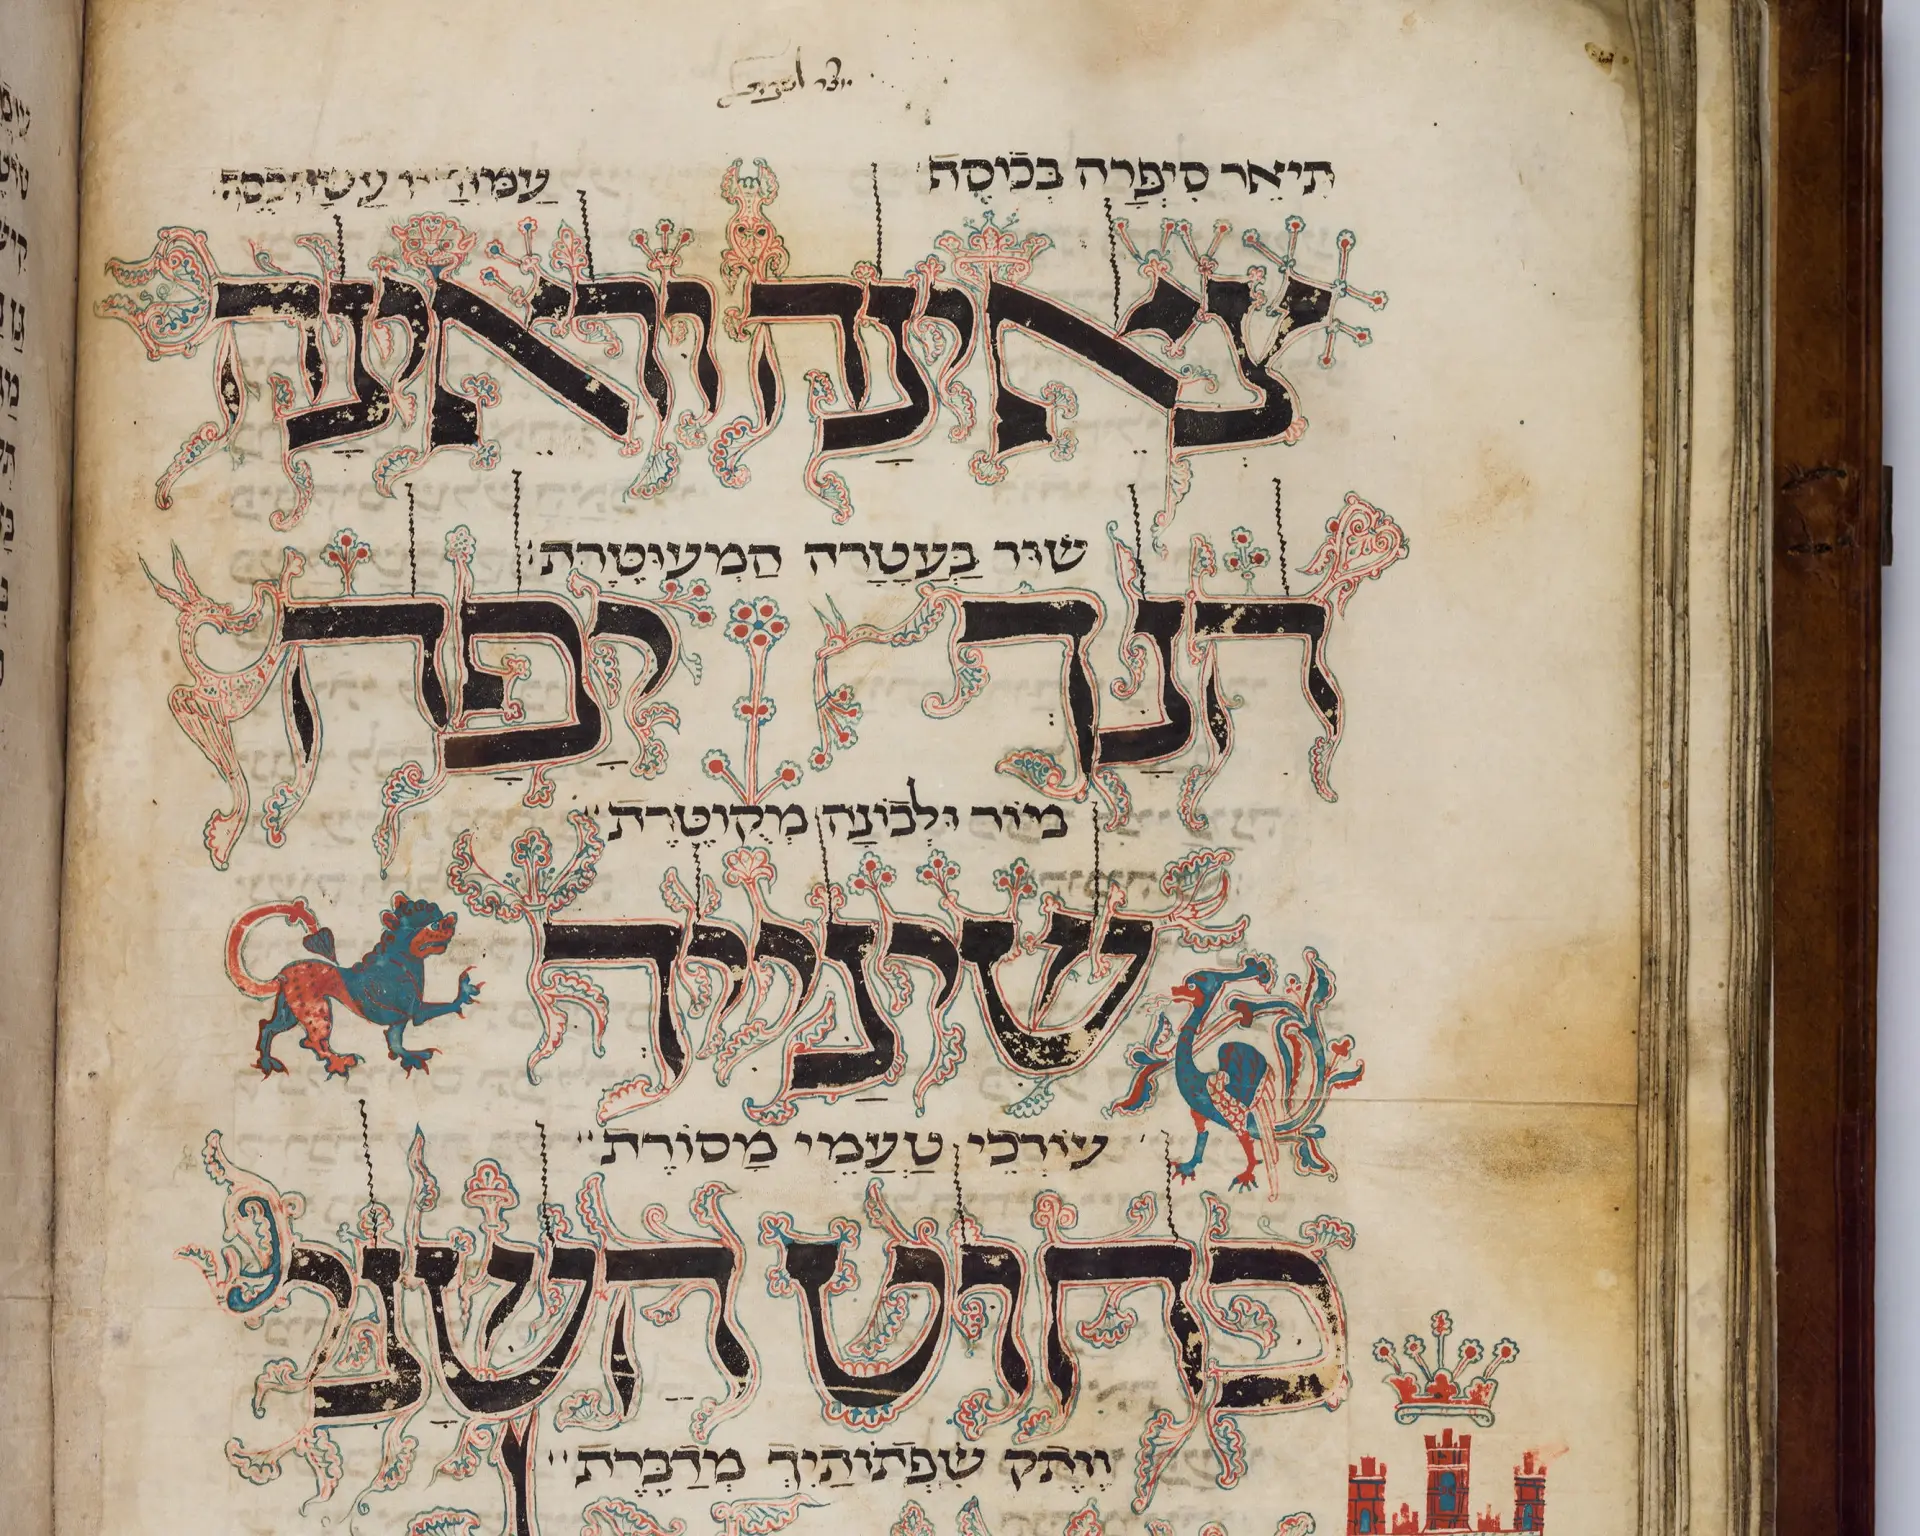 יוצר
תיאר סיפרה בכוסה עמודיו עשה כסף
צאינה וראינה
שור בעטרה המעוטרת
הנך יפה
מור ולבונה מקוטרת
שיניך
עורכי טעמי מסורת
כחוט השני
וותק שפתותיך מדברת